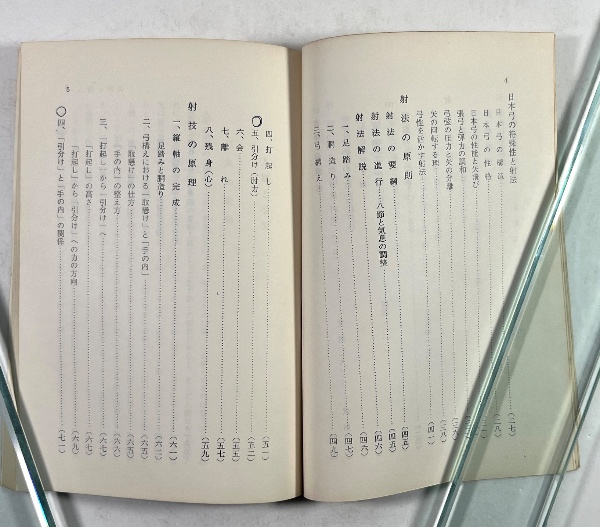 4
日本弓の特殊性と射法……(二七)
日本弓の構造……(二八)
日本弓の性格
日本弓の性能と矢飛び
張弓と弾力の調和
弓弦の圧力と矢の分離
矢の回転する理
弓性を活かす射法……(四一)
射法の原則……(四五)
射法の要綱……(四五)
射法の進行―八節と気息の調整……(四六)
射法解説……(四六)
一、足踏み……(四七)
二、胴造り……(四九)
三、弓構え
5
四、打起し……(五一)
五、引分け(肘力)……(五二)
六、会……(五五)
七、離れ……(五七)
八、残身(心)……(五九)
射技の原理
一、縦軸の完成……(六一)
足踏みと胴造り……(六二)
二、弓構えにおける「取懸け」と「手の内」
「取懸け」の仕方……(六五)
「手の内」の整え方……(六六)
三、「打起し」から「引分け」へ……(六七)
「打起し」の高さ……(六七)
「打起し」から「引分け」への力の方向……(六九)
四、「引分け」と「手の内」の関係……(七一)